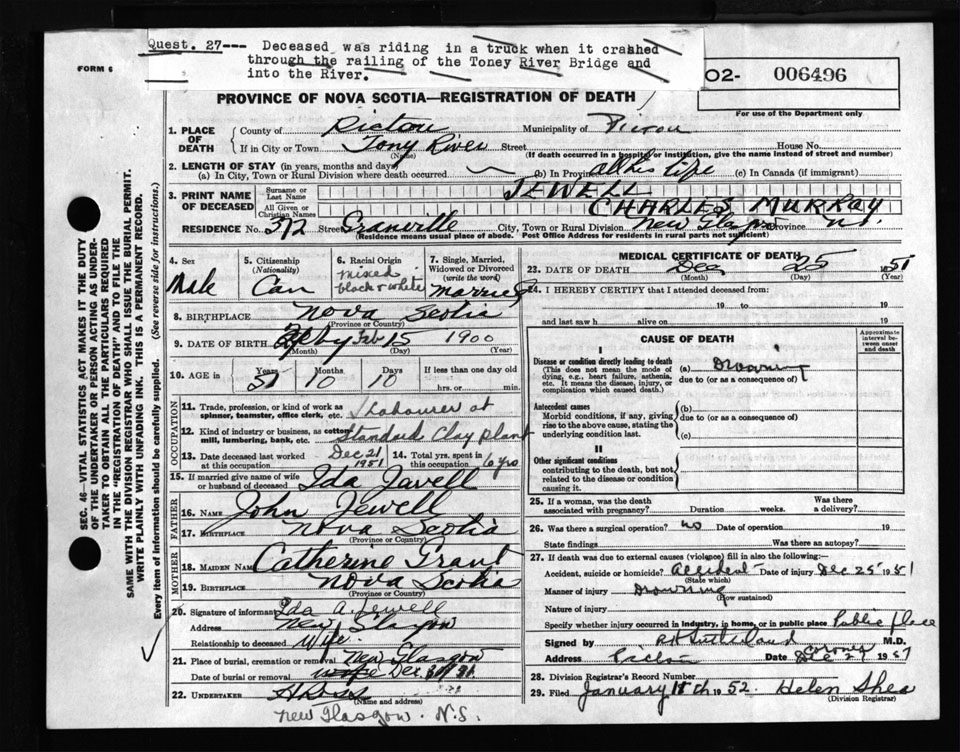 Quest. 27--- Deceased was riding in a truck when it crashed
through the railing of the Toney River Bridge and
into the River.
FORM 6
02- 006496
PROVINCE OF NOVA SCOTIA—REGISTRATION OF DEATH
For use of the Department only
1. PLACE OF DEATH { County of Pictou Municipality of Pictou
If in City or Town Tony River Street House No.
(Name) (If death occurred in a hospital or institution, give the name instead of street and number)
2. LENGTH OF STAY (in years, months and days)
(a) In City, Town or Rural Division where death occurred (b) In Province all his life (c) In Canada (if immigrant)
3. PRINT NAME OF DECEASED { Surname or Last Name JEWELL
All Given or Christian Names CHARLES MURRAY
RESIDENCE No. 372 Street Granville City, Town or Rural Division New Glasgow Province N.S.
(Residence means usual place of abode. Post Office Address for residents in rural parts not sufficient)
4. Sex Male
5. Citizenship (Nationality) Can
6. Racial Origin mixed black & white
7. Single, Married, Widowed or Divorced (write the word) Married
8. BIRTHPLACE Nova Scotia
(Province or Country)
9. DATE OF BIRTH Feb 15 1900
(Month) (Day) (Year)
10. AGE in Years 51 Months 10 Days 10 If less than one day old hrs. or min.
OCCUPATION
11. Trade, profession, or kind of work as spinner, teamster, office clerk, etc. Labourer at
12. Kind of industry or business, as cotton mill, lumbering, bank, etc. Standard Clay plant
13. Date deceased last worked at this occupation Dec 21 1951 14. Total yrs. spent in this occupation 6 yrs
15. If married give name of wife or husband of deceased Ida Jewell
FATHER
16. NAME John Jewell
17. BIRTHPLACE Nova Scotia
(Province or Country)
MOTHER
18. MAIDEN NAME Catherine Grant
19. BIRTHPLACE Nova Scotia
(Province or Country)
20. Signature of informant Ida A. Jewell
Address New Glasgow
Relationship to deceased Wife
21. Place of burial, cremation or removal New Glasgow
Date of burial or removal Dec
22. UNDERTAKER
(Name and address)
New Glasgow. N.S.
MEDICAL CERTIFICATE OF DEATH
23. DATE OF DEATH Dec 25 1951
(Month) (Day) (Year)
24. I HEREBY CERTIFY that I attended deceased from:
19 to 19
and last saw h alive on 19
CAUSE OF DEATH
Approximate interval between onset and death
I
Disease or condition directly leading to death
(This does not mean the mode of dying, e.g., heart failure, asthenia, etc. It means the disease, injury, or complication which caused death.)
(a) Drowning
due to (or as a consequence of)
Antecedent causes
Morbid conditions, if any, giving rise to the above cause, stating the underlying condition last.
(b)
due to (or as a consequence of)
(c)
II
Other significant conditions
contributing to the death, but not related to the disease or condition causing it.
25. If a woman, was the death associated with pregnancy? Duration weeks. Was there a delivery?
26. Was there a surgical operation? no Date of operation 19
State findings Was there an autopsy?
27. If death was due to external causes (violence) fill in also the following:—
Accident, suicide or homicide? Accident Date of injury Dec 25 1951
(State which)
Manner of injury Drowning
(How sustained)
Nature of injury
Specify whether injury occurred in industry, in home, or in public place Public place
Signed by Sutherland M.D.
Coroner
Address Pictou Date Dec 27 1951
28. Division Registrar's Record Number
29. Filed January 18th 1952. Helen Shea
(Division Registrar)
SEC. 46—VITAL STATISTICS ACT MAKES IT THE DUTY
OF THE UNDERTAKER OR PERSON ACTING AS UNDER-
TAKER TO OBTAIN ALL THE PARTICULARS REQUIRED
IN THE "REGISTRATION OF DEATH" AND TO FILE THE
SAME WITH THE DIVISION REGISTRAR WHO SHALL ISSUE THE BURIAL PERMIT.
WRITE PLAINLY WITH UNFADING INK. THIS IS A PERMANENT RECORD.
Every item of information should be carefully supplied. (See reverse side for instructions.)